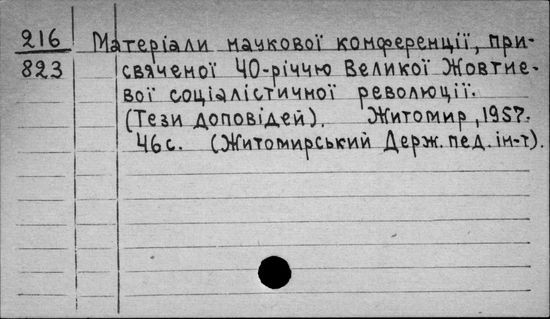 216 Матеріали наукової конференції, при-
823 свяченої 40-річчю Великої Жовтне-
вої соціалістичної революції.
(Тези доповідей). Житомир, 1957.
46 с. (Житомирський Держ. пед. ін-т).